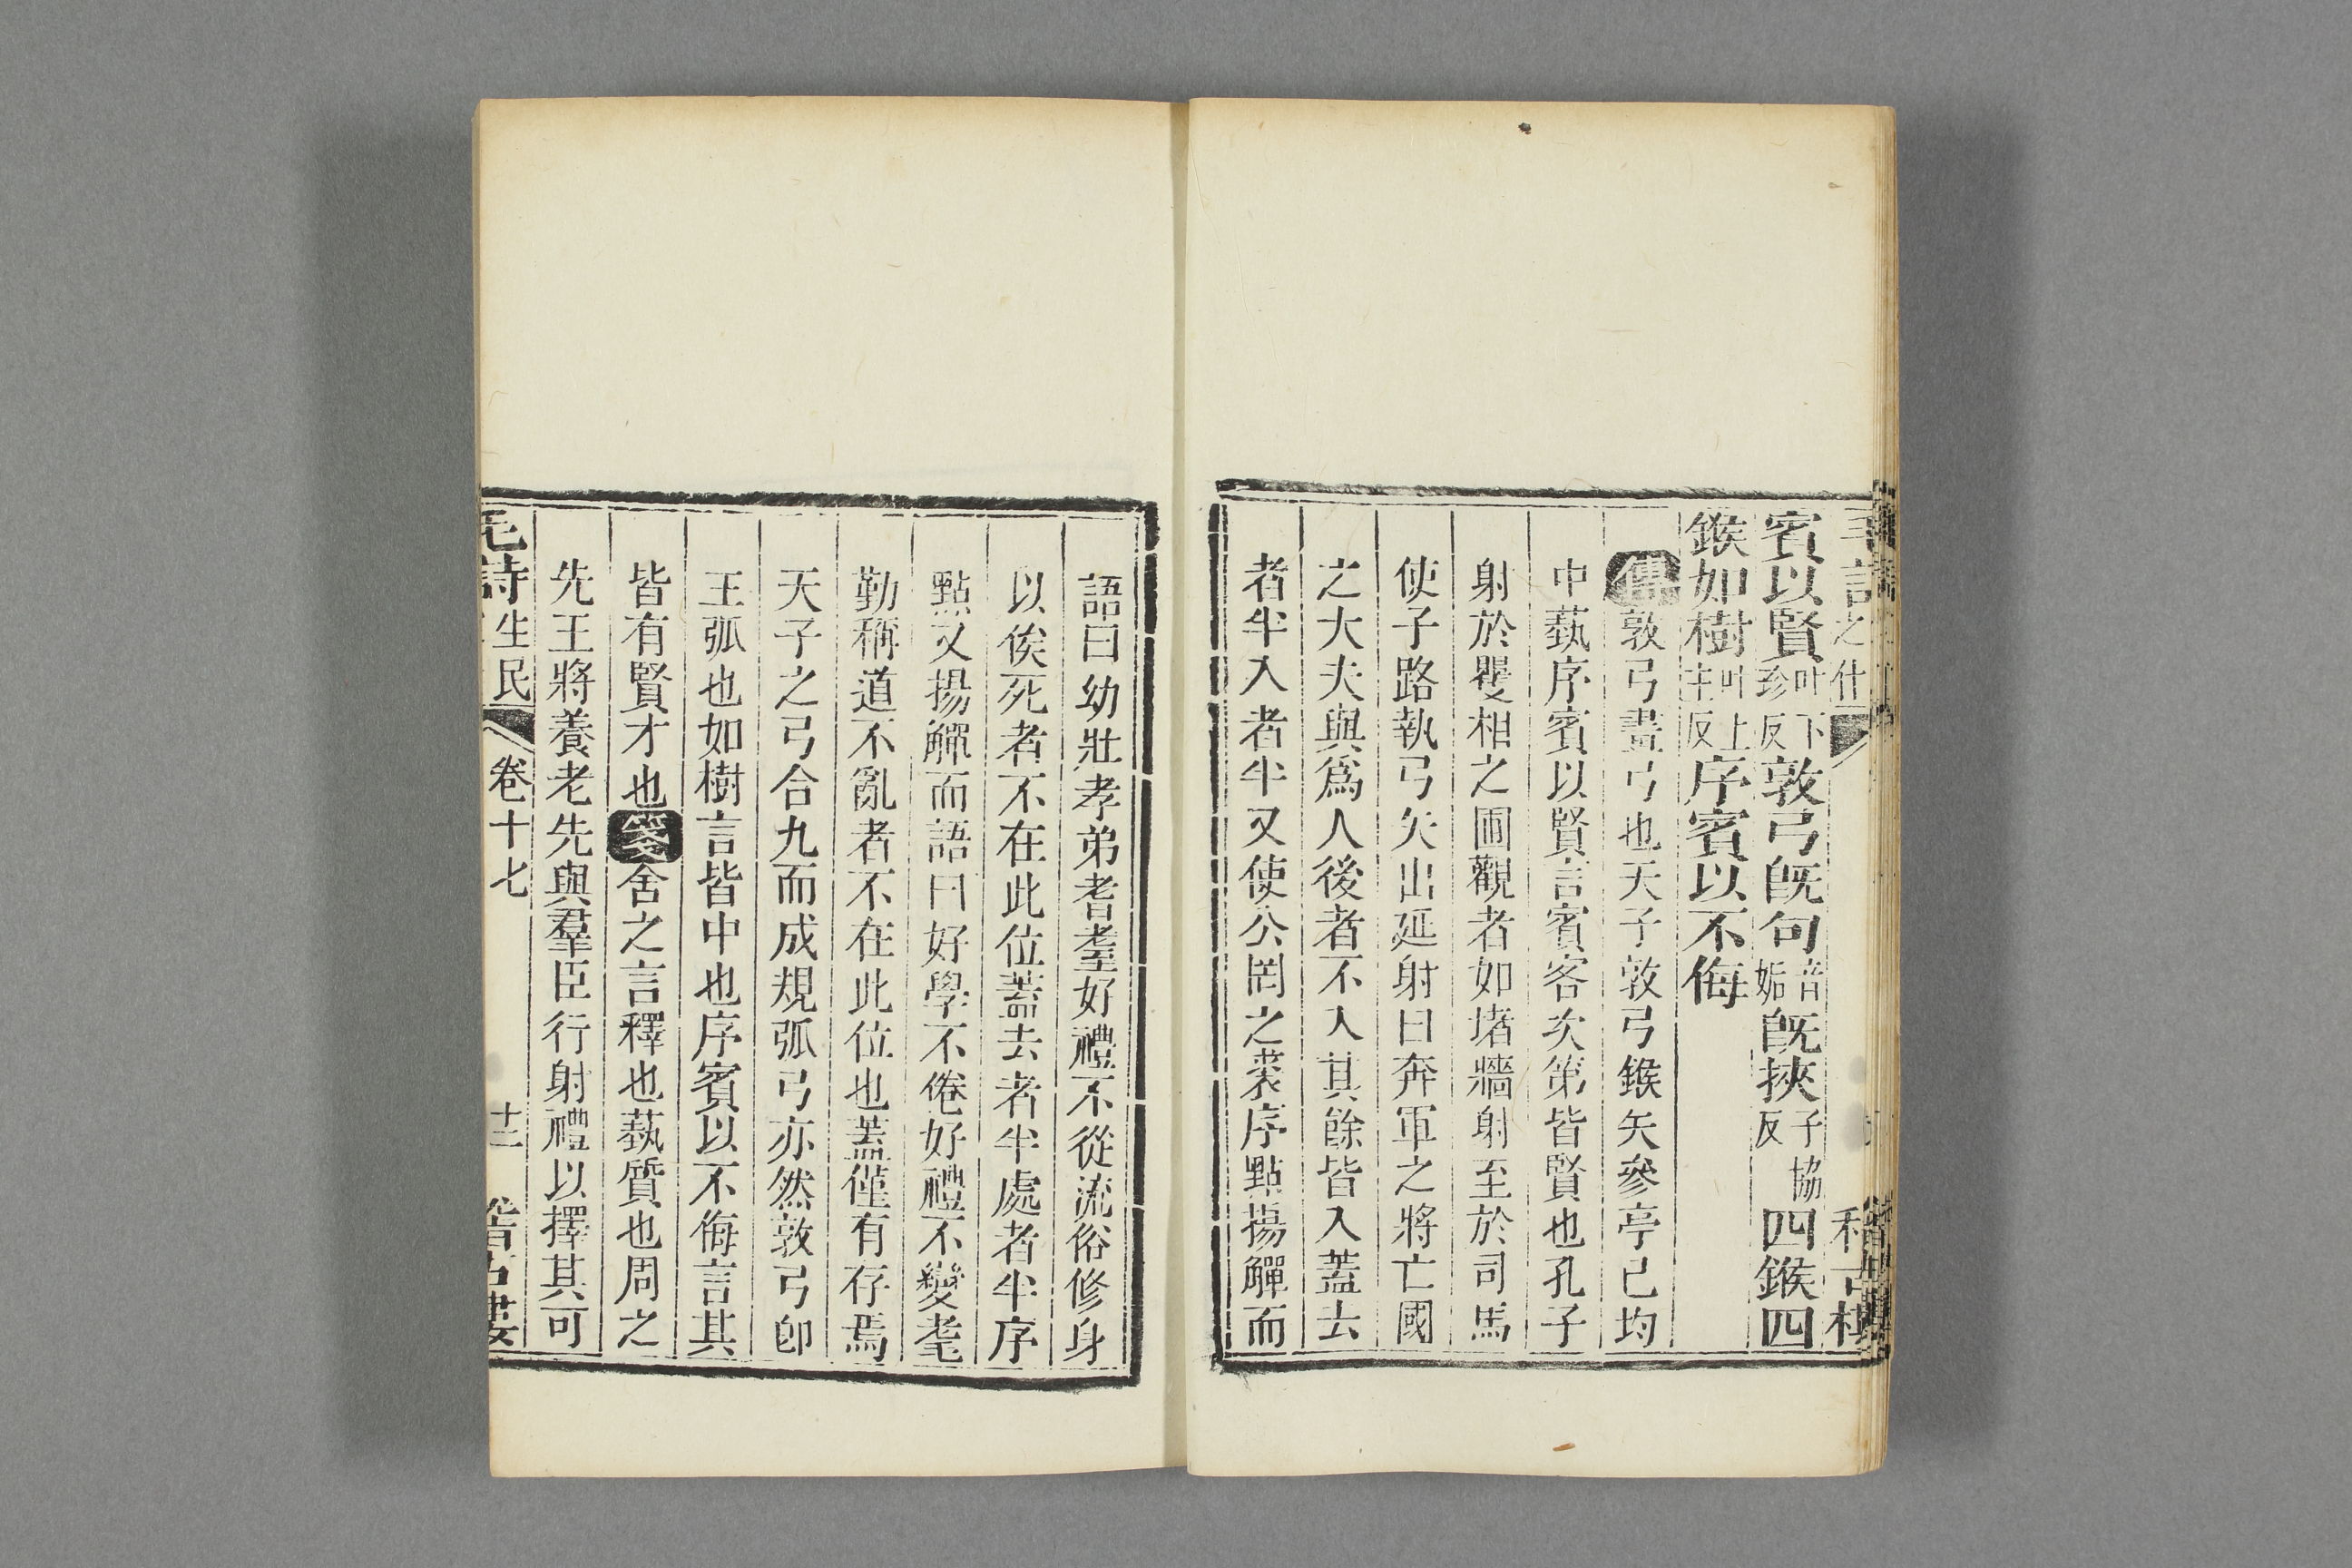 賓以賢叶下珍反敦弓旣句音姤旣挾子協反四鍭四
鍭如樹叶上主反序賓以不侮
傳敦弓畫弓也天子敦弓鍭矢參亭已均
中蓺序賓以賢言賓客次第皆賢也孔子
射於矍相之圃觀者如堵牆射至於司馬
使子路執弓矢出延射曰奔軍之將亡國
之大夫與爲人後者不入其餘皆入蓋去
者半入者半又使公罔之裘序點揚觶而
語曰幼壯孝弟耆耋好禮不從流俗修身
以俟死者不在此位蓋去者半處者半序
點又揚觶而語曰好學不倦好禮不變耄
勤稱道不亂者不在此位也蓋僅有存焉
天子之弓合九而成規弧弓亦然敦弓卽
王弧也如樹言皆中也序賓以不侮言其
皆有賢才也箋舍之言釋也蓺質也周之
先王將養老先與羣臣行射禮以擇其可
毛詩生民 卷十七 十二